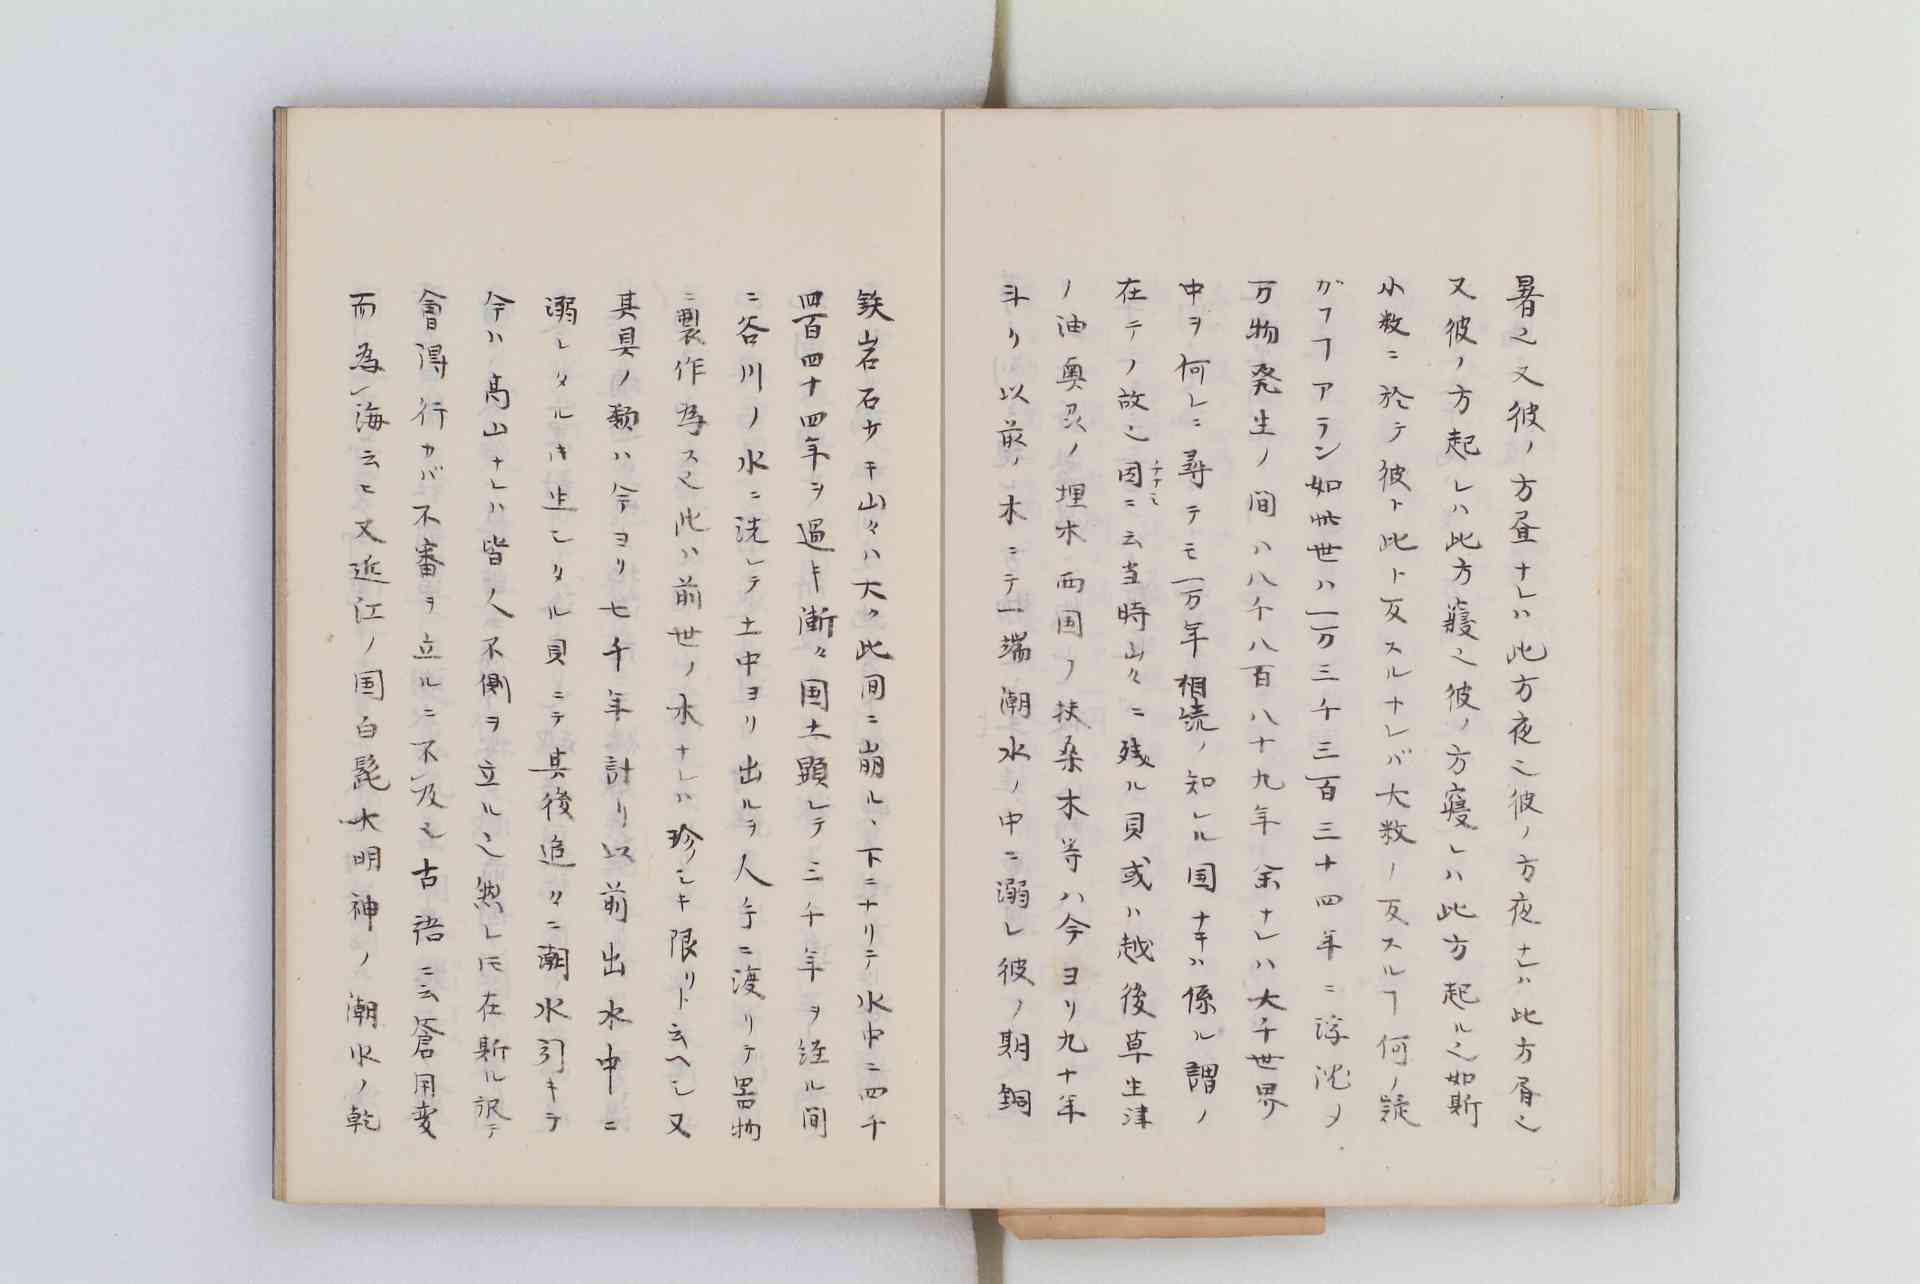 暑之又彼ノ方昼ナレハ此方夜之彼ノ方夜ナレハ此方昼之
又彼ノ方起レハ此方寢之彼ノ方寢レハ此方起ル之如斯
小数ニ於テ彼ト此ト反スルナレバ大数ノ反スルヿ何ノ疑
カフヿアラン如此世ハ一万三千三百三十四年ニ浮沈ノ
万物発生ノ間ハ八千八百八十九年余ナレハ大千世界
中ヲ何レニ尋テモ一万年相続ノ知レル国ナキハ係ル謂ノ
在テノ故之因ニ云当時山々ニ残ル貝或ハ越後草生津
チナミ
ノ油奥忍ノ埋木西国ノ扶桒木等ハ今ヨリ九十年
斗り以前ノ木ニテ一端潮水ノ中ニ溺レ彼ノ期銅
鉄岩石サキ山々ハ大ク此間ニ崩ル、下ニナリテ水中ニ四千
四百四十四年ヲ過キ漸々国土顕レテ三千年ヲ経ル間
ニ谷川ノ水ニ洗レテ土中ヨリ出ルヲ人手ニ渡リテ器物
ニ製作為ス之此ハ前世ノ木ナレハ珍シキ限リト云ヘシ又
其具ノ類ハ今ヨリ七千年計リ以前出水中ニ
溺レタルキ生シタル貝ニテ其後追々ニ潮水引キテ
今ハ高山ナレハ皆ノ人不側ヲ立ル之然レ𪜈在斯ル訳テ
會得行カバ不審ヲ立ルニ不及之古語ニ云蒼用変
而為レ海云ヒ又近江ノ国白髭大明神ノ潮水ノ乾